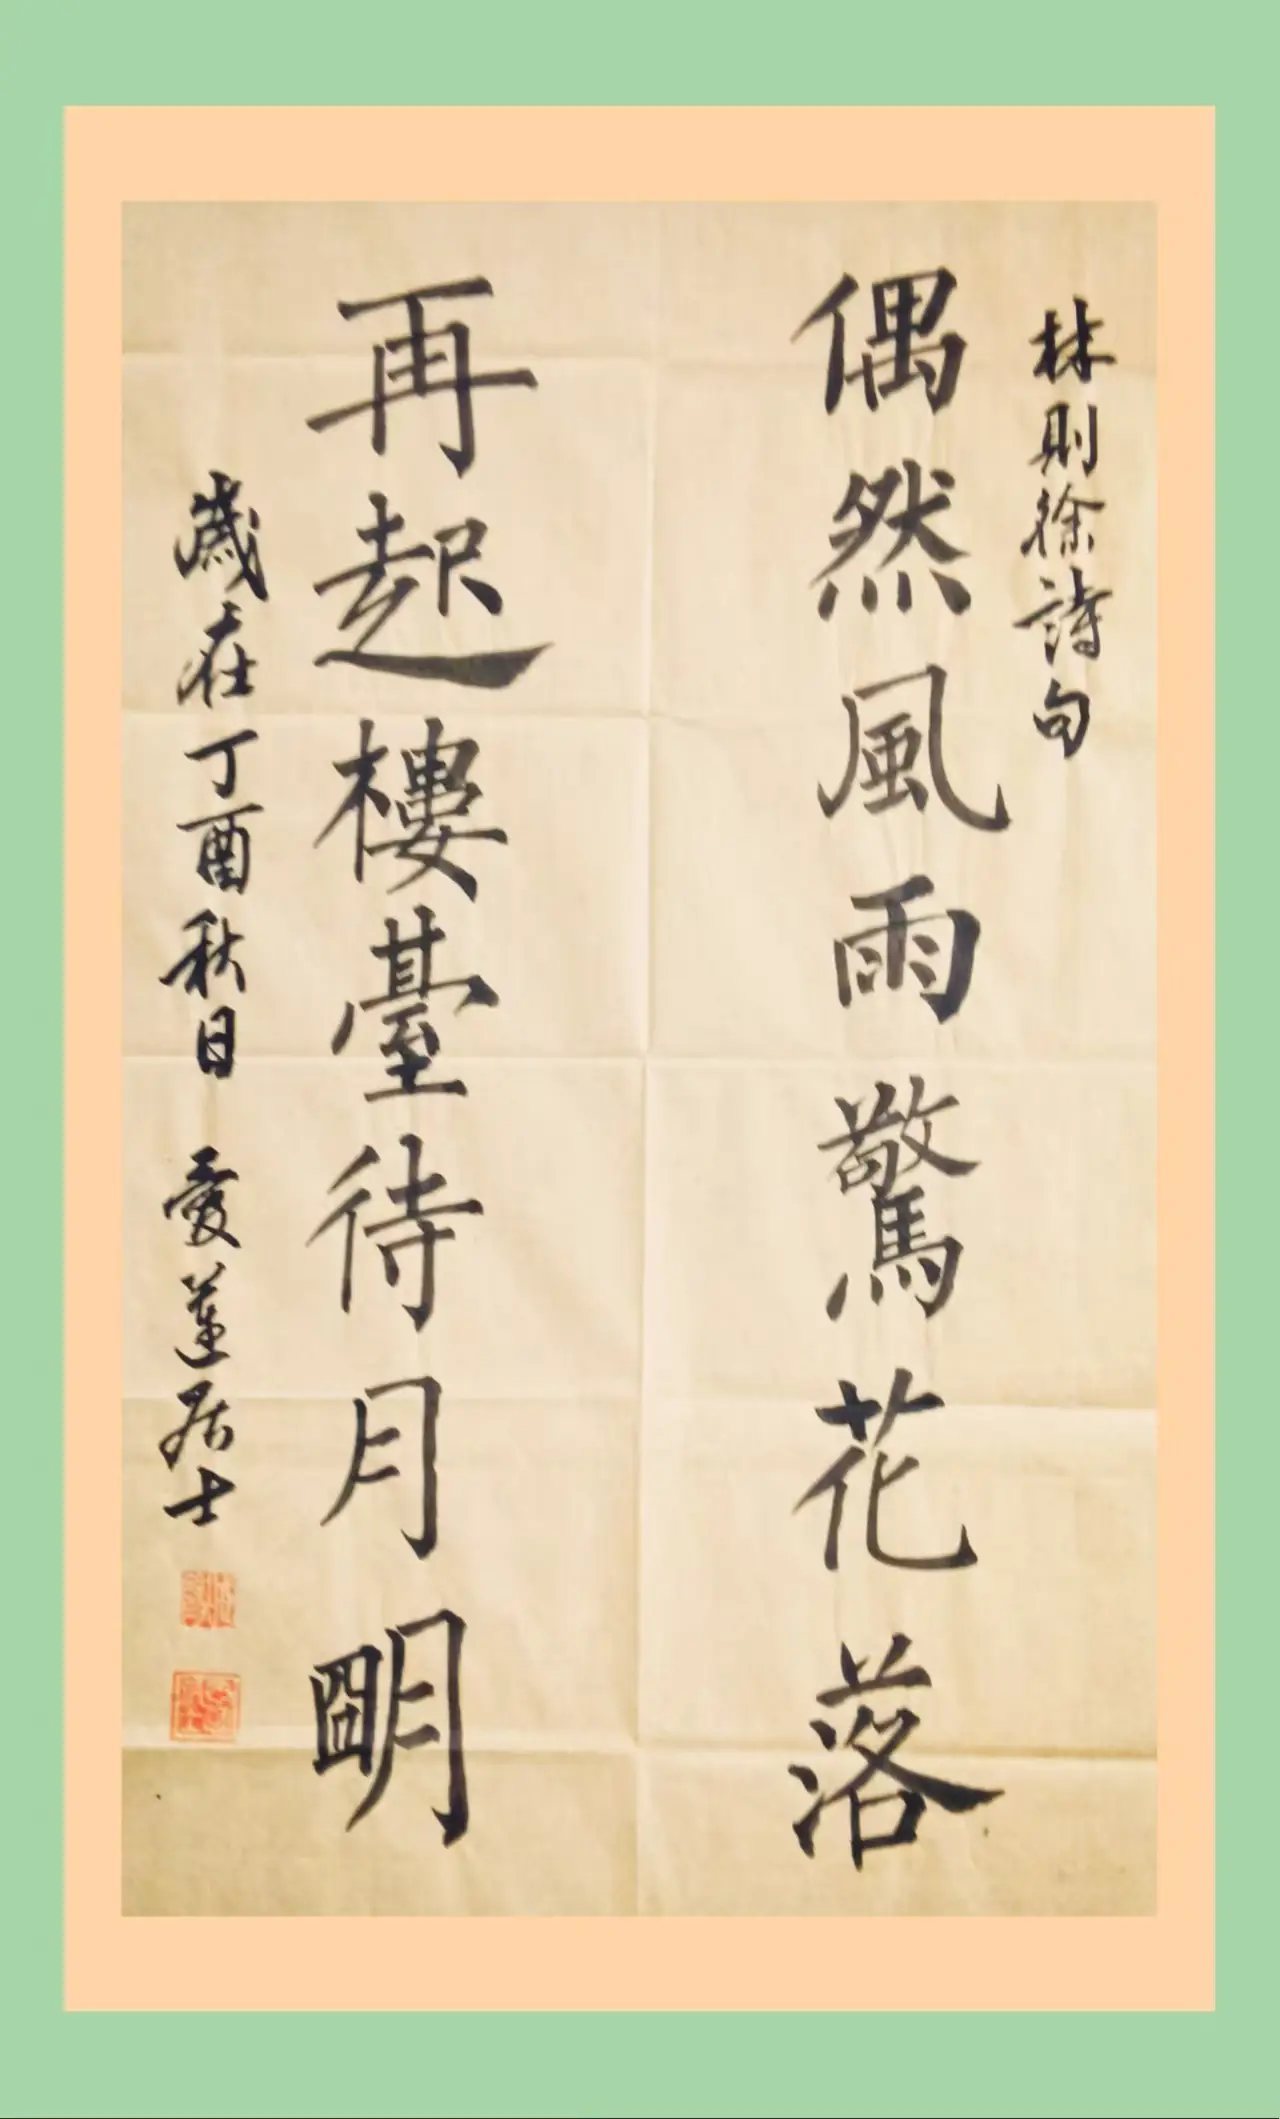 林則徐詩句
偶然風雨驚花落
再起樓臺待月明
歲在丁酉秋日 愛蓮居士